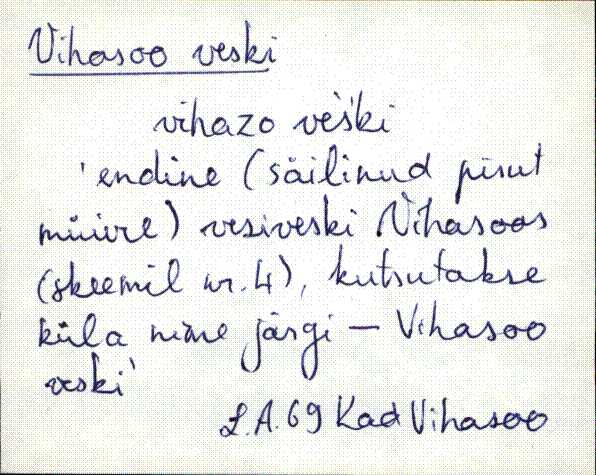 Vihasoo veski
vihazo vèški
'endine (säilinud pisut
müüre) vesiveski Vihasoos
(skeemil nr. 4), kutsutakse
küla nime järgi – Vihasoo
veski'
L.A. 69 Kad Vihasoo